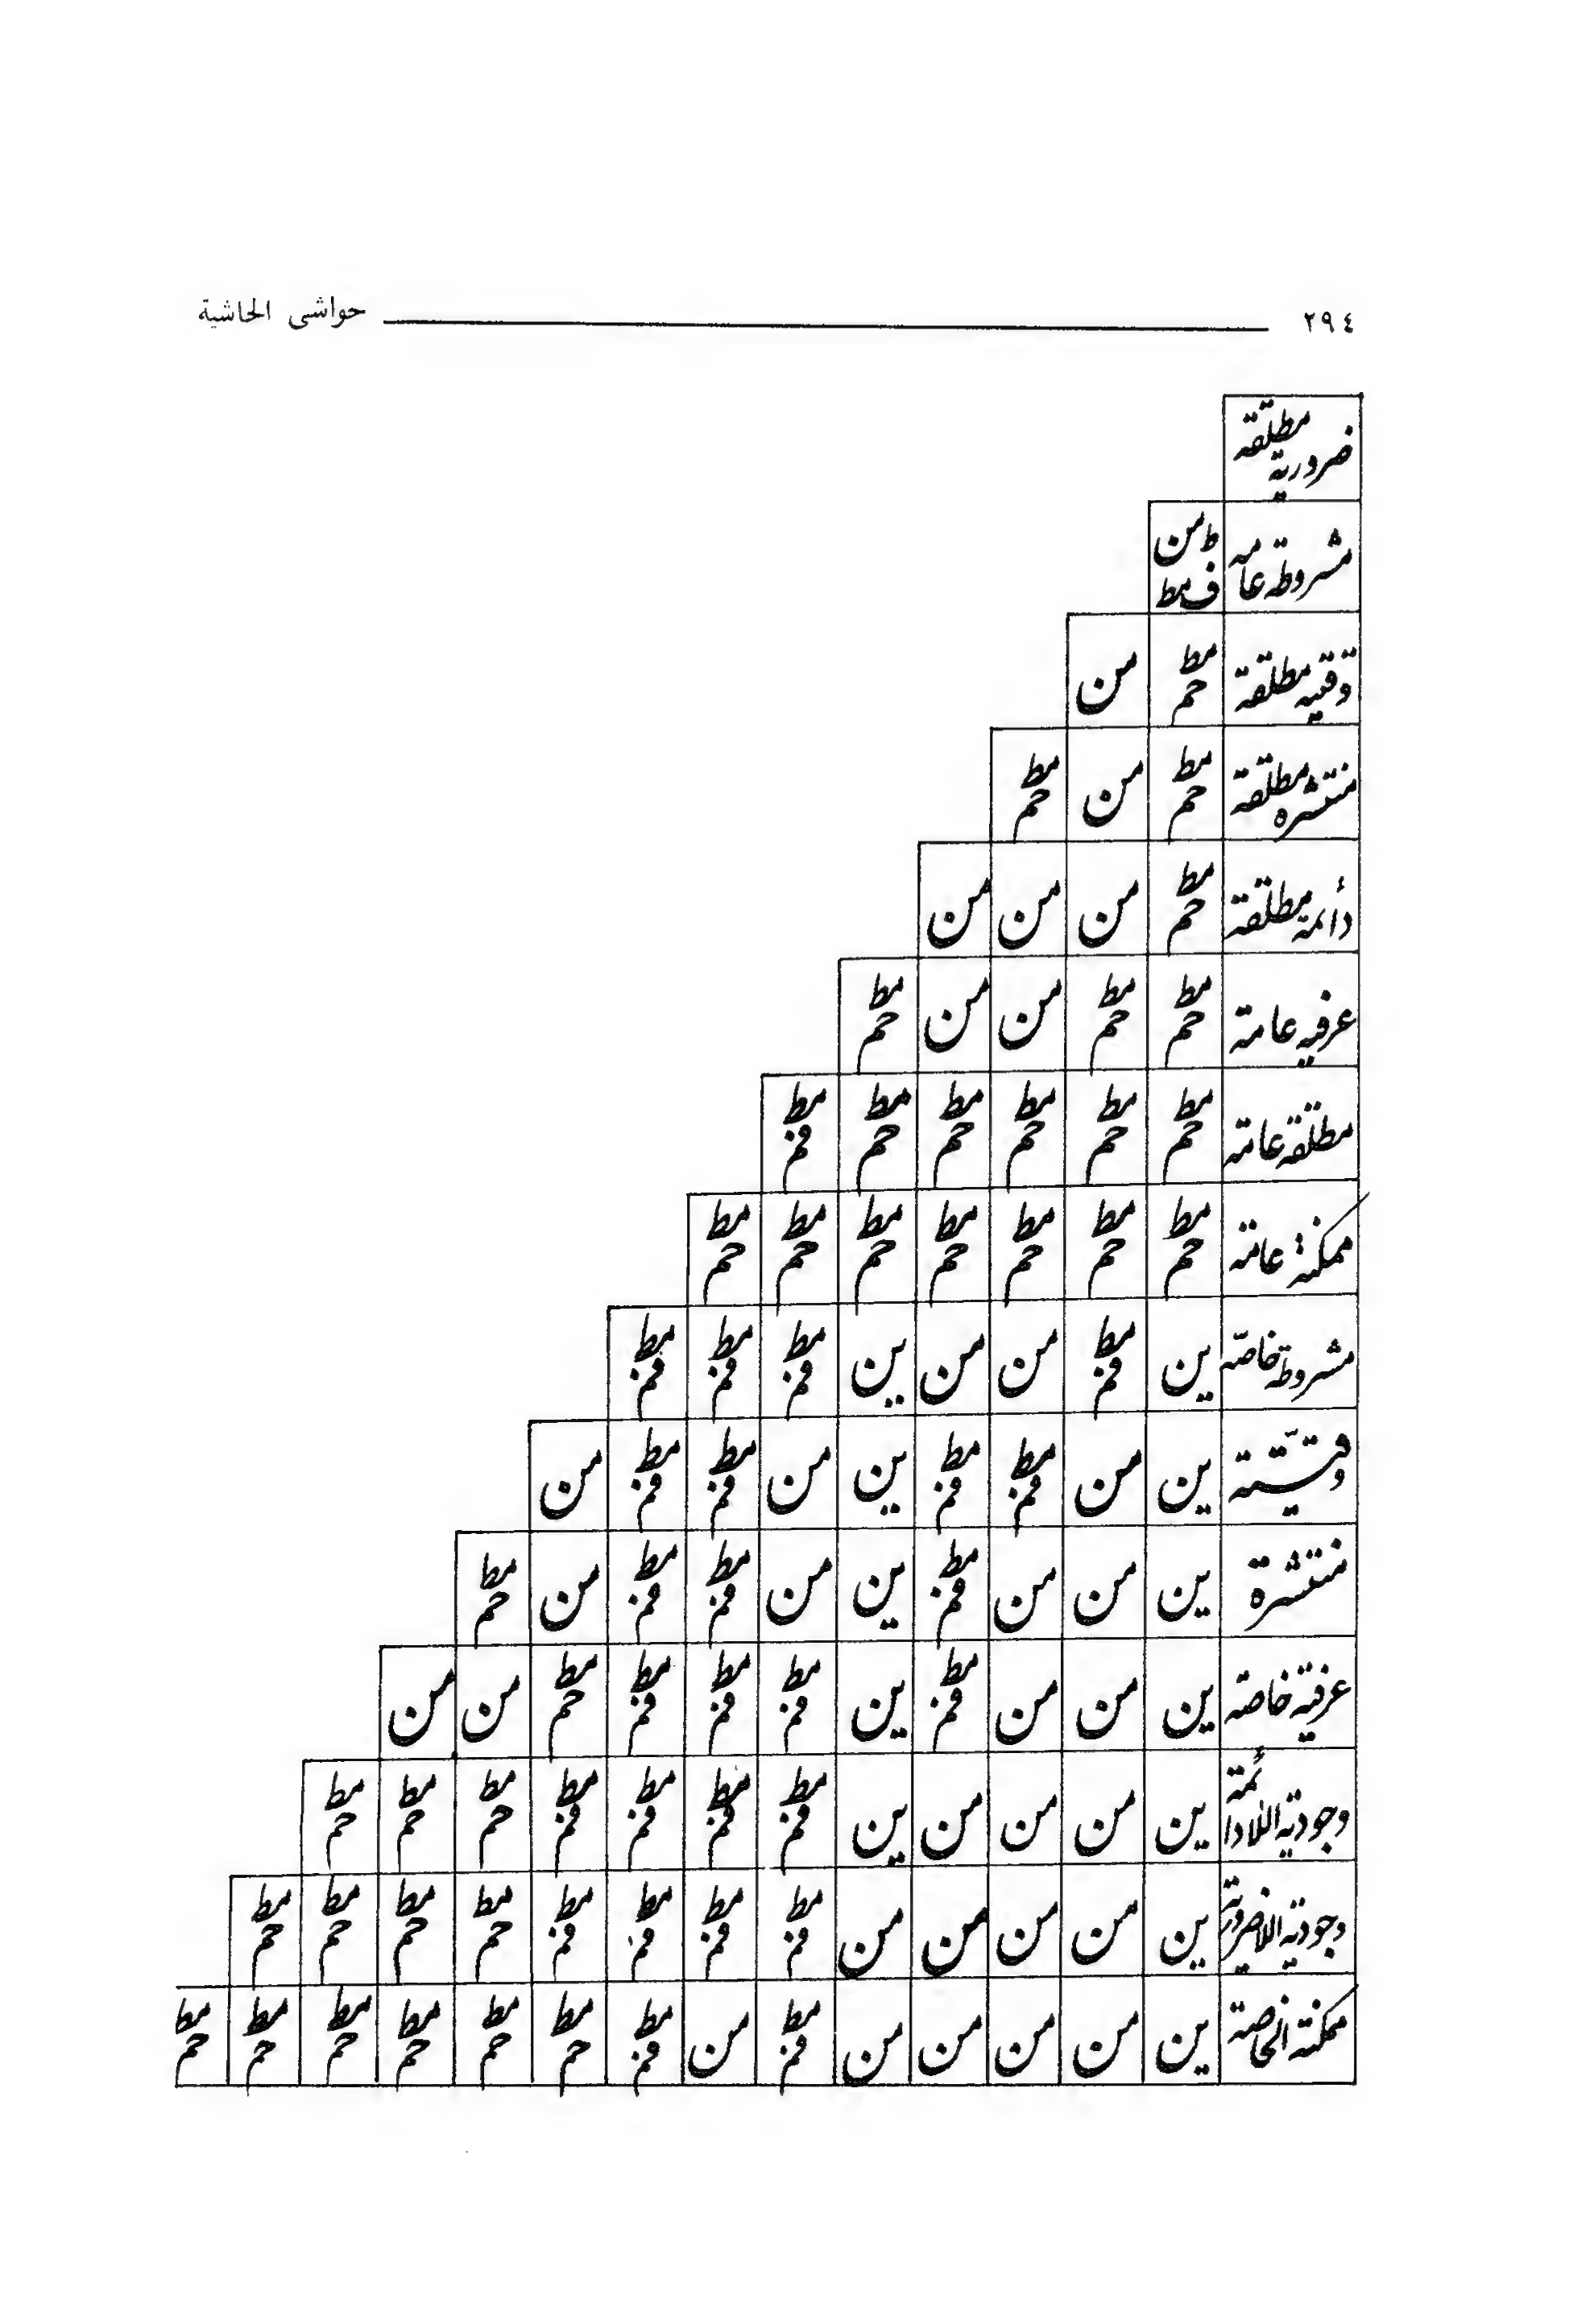 ٢٩٤ حواشى الحاشية
ضرورية مطلقة
مشروطة عامه ط من ف مط
وقتيه مطلقة مط حم من
منتشره مطلقة مط حم من مط حم
دائمه مطلقة مط حم من من من
عرفيه عامة مط حم مط حم من من مط حم
مطلقة عامة مط حم مط حم مط حم مط حم مط حم مط فم
ممكنة عامة مط حم مط حم مط حم مط حم مط حم مط حم مط حم
مشروطة خاصّه ين مط فم من من ين مط فم مط فم مط فم
وقتيّة ين من مط فم مط فم ين من مط فم مط فم من
منتشرة ين من من مط فم ين من مط فم مط فم من مط حم
عرفيّة خاصة ين من من مط فم ين مط فم مط فم مط فم مط حم من من
وجوديّة اللادائمة ين من من من ين مط فم مط فم مط فم مط فم مط حم مط حم مط حم
وجوديّة اللاضرورية ين من من من من مط فم مط فم مط فم مط فم مط حم مط حم مط حم مط حم
ممكنة الخاصة ين من من من من مط فم من مط فم مط حم مط حم مط حم مط حم مط حم مط حم